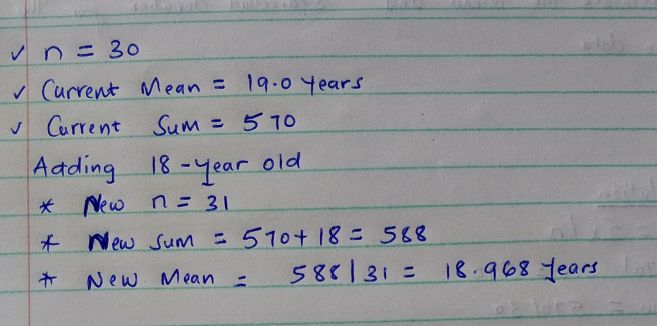 ✓ n = 30
✓ Current Mean = 19.0 years
✓ Current Sum = 570
Adding 18-year old
* New n = 31
* New sum = 570 + 18 = 588
* New Mean = 588 | 31 = 18.968 years